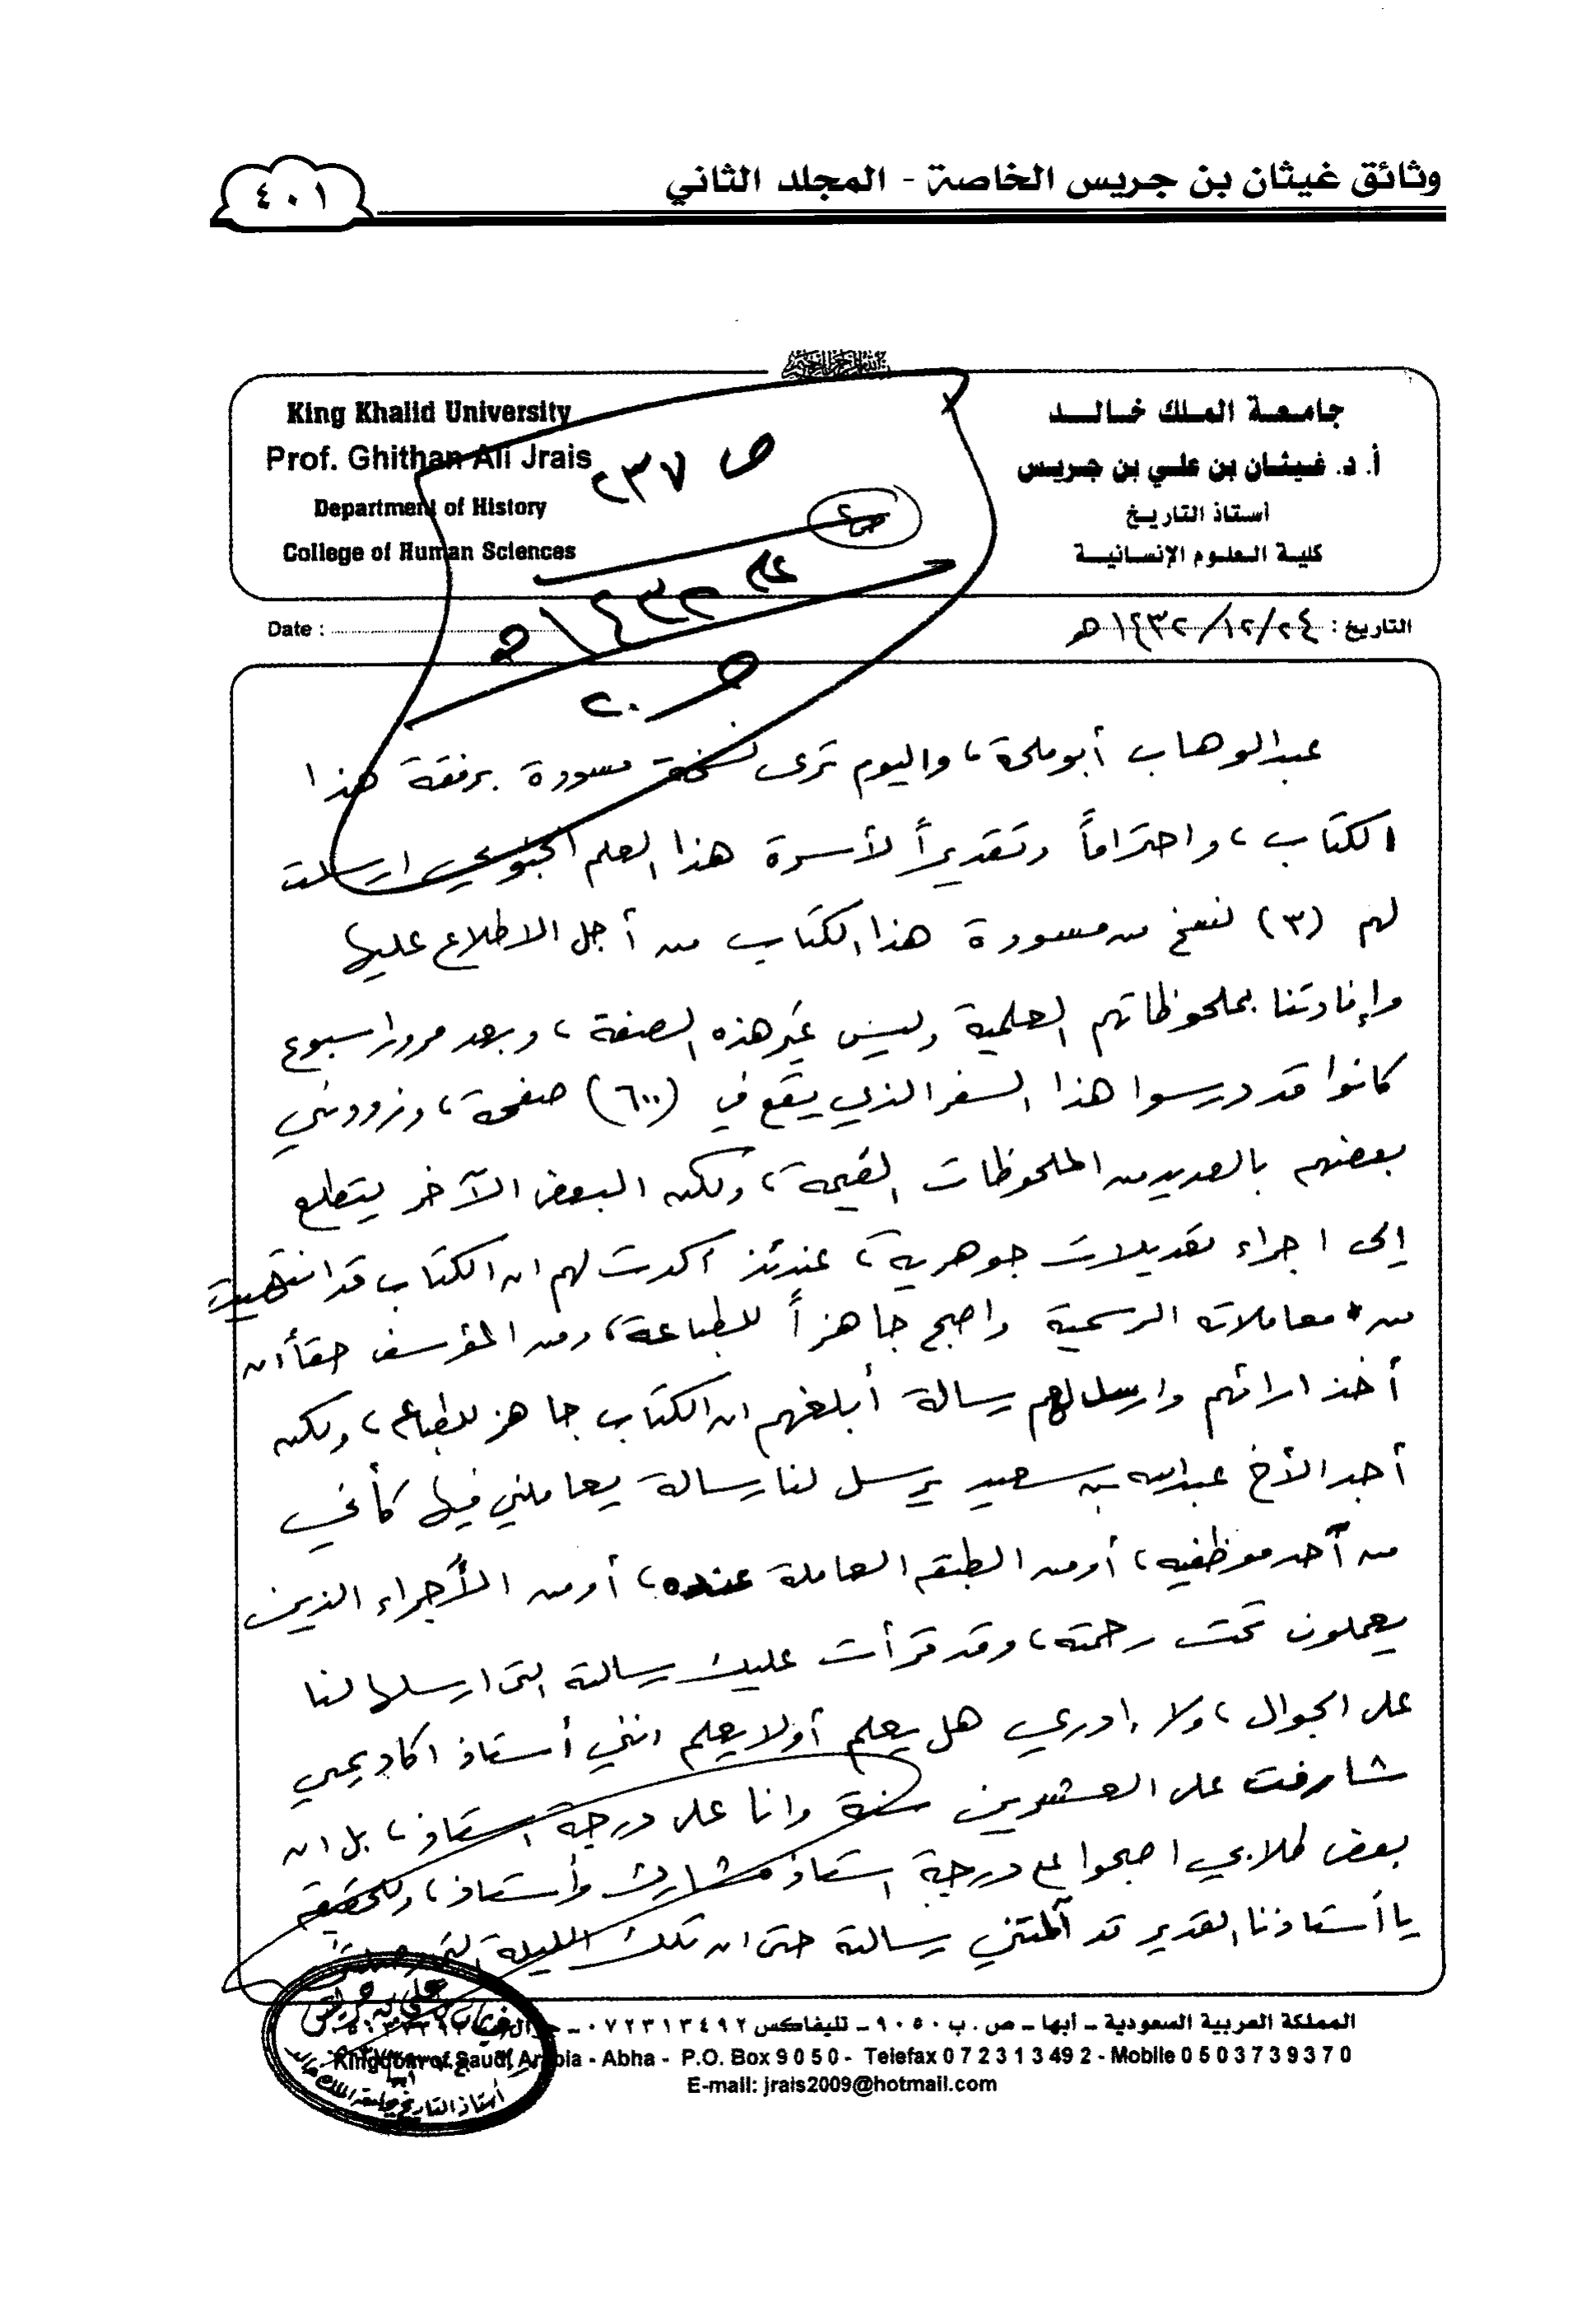 وثائق غيثان بن جريس الخاصة - المجلد الثاني
٤٠١
King Khalid University
Prof. Ghithan Ali Jrais
Department of History
College of Human Sciences
جامعة الملك خالد
أ. د. غيثان بن علي بن جريس
أستاذ التاريخ
كلية العلوم الإنسانية
ص ٢٣٧
ص٢
عام ١٤٣٢هـ
Date :
التاريخ : ٢٤/١٢/١٤٣٢هـ
ص ٢٠
عبدالوهاب أبوملحة، واليوم ترى نسخة مسودة برفقة هذا
الكتاب، واحتراماً وتقديراً لأسرة هذا العلم الجنوبي ارسلت
لهم (٣) نسخ من مسودة هذا الكتاب من أجل الاطلاع عليها
وإفادتنا بملحوظاتهم العلمية وليس غير هذه الصفة، وبعد مرور اسبوع
كانوا قد درسوا هذا السفر الذي يقع في (٦٠٠) صفحة، وزودني
بعضهم بالعديد من الملحوظات القيمة، ولكن البعض الآخر يتطلع
إلى اجراء تعديلات جوهرية، عندئذ أكدت لهم ان الكتاب قد انتهيت
من معاملاته الرسمية واصبح جاهزاً للطباعة، ومن المؤسف حقاً ان
أخذ ارائهم وارسل لهم رسالة أبلغهم ان الكتاب جاهز للطباعة، ولكن
أجد الأخ عبدالله بن سعيد يرسل لنا رسالة يعاملني فيها كأني
من أحد موظفيه، أو من الطبقه العاملة عنده، أو من الأجراء الذين
يعملون تحت رحمته، وقد قرأت عليك رسالته التي ارسلها لنا
على الجوال، ولا ادري هل يعلم أولا يعلم انني أستاذ اكاديمي
شارفت على العشرين سنة وانا على درجة استاذ، بل ان
بعض طلابي اصبحوا على درجة استاذ مشارك وأستاذ، وللحقيقة
يا أستاذنا القدير قد آلمتني رسالته حتى ان تلك الليلة التي
المملكة العربية السعودية - أبها - ص. ب ٩٠٥٠ - تليفاكس ٠٧٢٣١٣٤٩٢ -
Kingdom of Saudi Arabia - Abha - P.O. Box 9 0 5 0 - Telefax 0 7 2 3 1 3 4 9 2 - Mobile 0 5 0 3 7 3 9 3 7 0
E-mail: jrais2009@hotmail.com
أستاذ التاريخ بجامعة الملك خالد